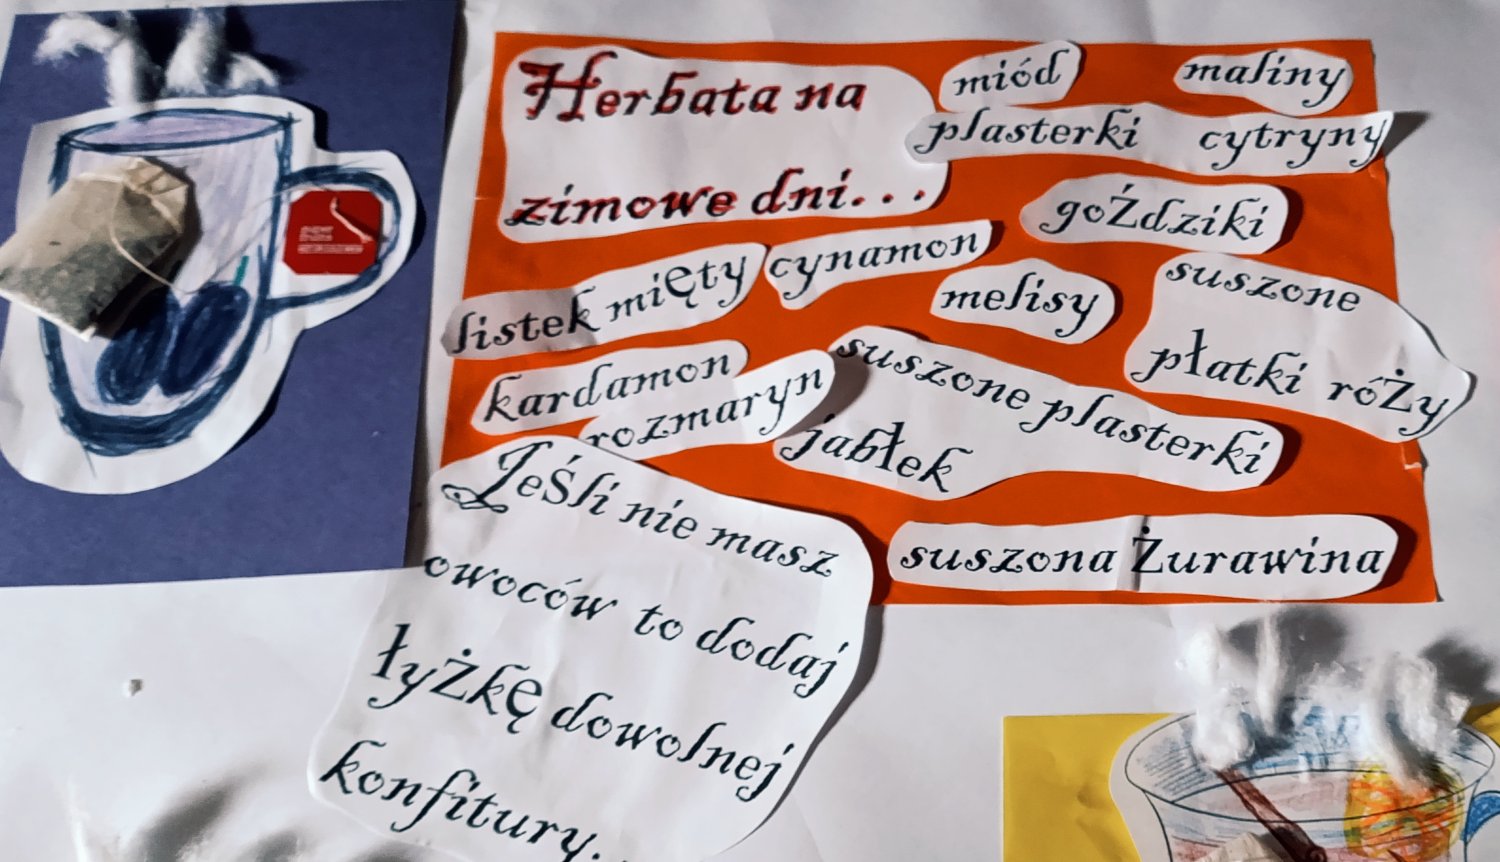 Herbata na
zimowe dni...
miód
maliny
plasterki cytryny
goździki
listek mięty
cynamon
melisy
suszone
płatki róży
kardamon
rozmaryn
suszone plasterki
jabłek
suszona żurawina
Jeśli nie masz
owoców to dodaj
łyżkę dowolnej
konfitury..